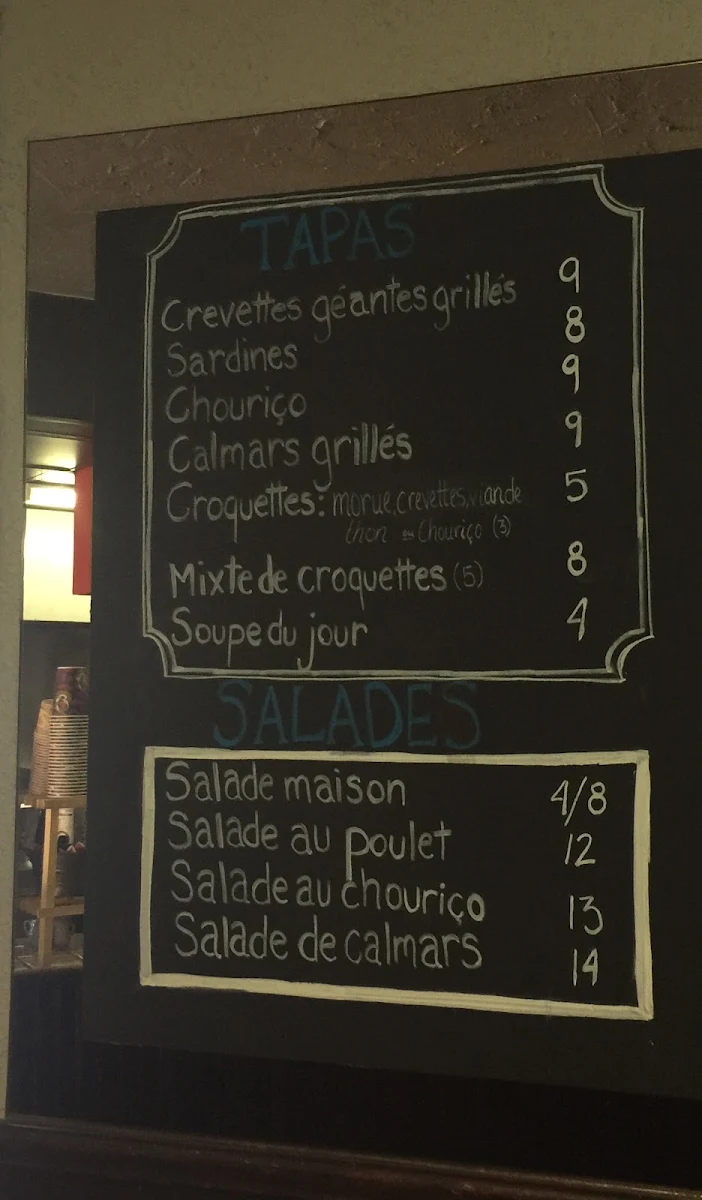 TAPAS
Crevettes géantes grillés 9
Sardines 8
Chouriço 9
Calmars grillés 9
Croquettes: morue, crevettes, viande 5
thon ou chouriço (3)
Mixte de croquettes (5) 8
Soupe du jour 4
SALADES
Salade maison 4/8
Salade au poulet 12
Salade au chouriço 13
Salade de calmars 14